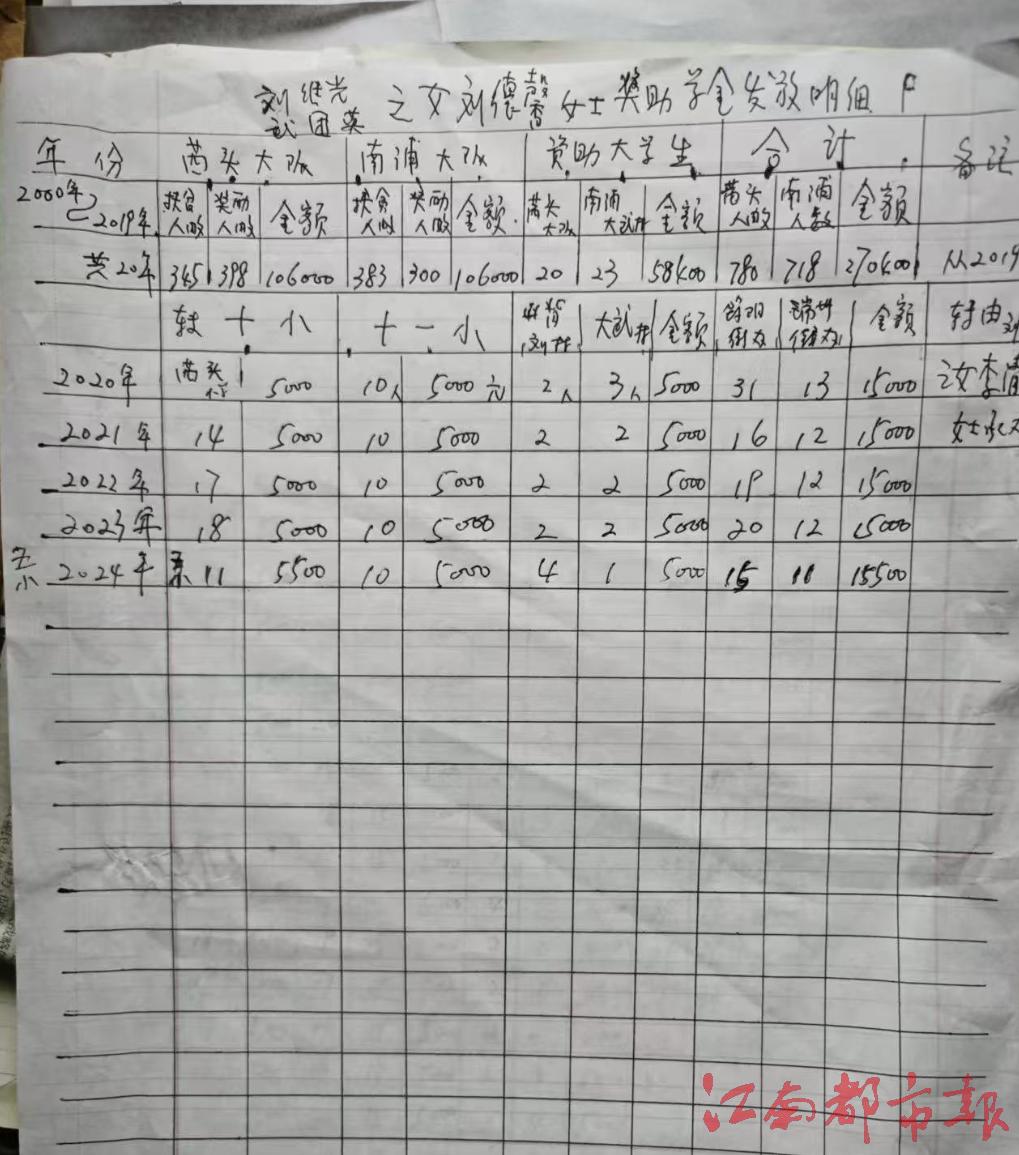 刘继光 武团英 之女刘德馨女士奖助学金发放明细
年份 蒿头大队 南浦大队 资助大学生 合计 备注
2000年~2019年 扶贫人数 奖励人数 金额 扶贫人数 奖励人数 金额 蒿头大队 南浦大武村 金额 蒿头人数 南浦人数 金额
共20年 345 398 106000 383 300 106000 20 23 58400 780 718 270400 从2019
转十小 十一小 刘村 大武村 金额 金额 转由刘
2020年 蒿头 5000 10人 5000元 2人 3人 5000 31 13 15000 之女李清
2021年 14 5000 10 5000 2 2 5000 16 12 15000 女士
2022年 17 5000 10 5000 2 2 5000 19 12 15000
2023年 18 5000 10 5000 2 2 5000 20 12 15000
2024年 11 5500 10 5000 4 1 5000 15 11 15500
江南都市報